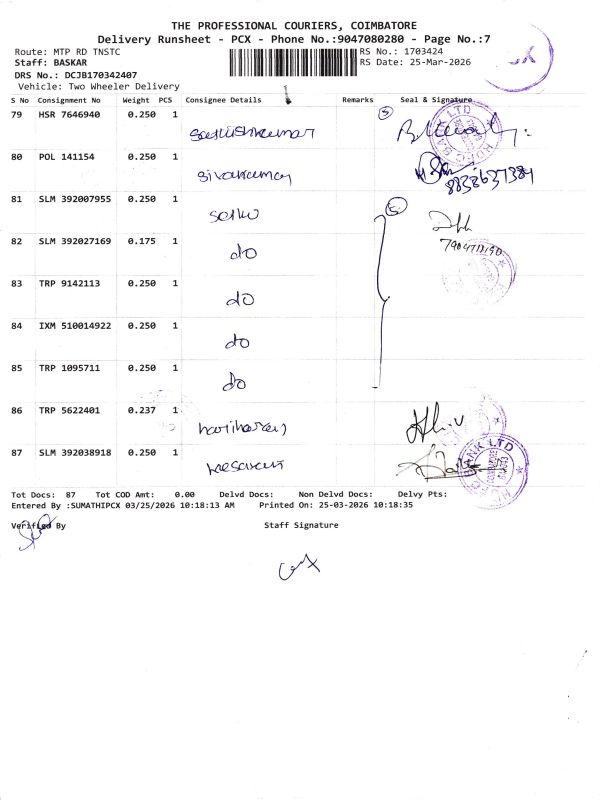 THE PROFESSIONAL COURIERS, COIMBATORE
Delivery Runsheet - PCX - Phone No.:9047080280 - Page No.:7
Route: MTP RD TNSTC RS No.: 1703424
Staff: BASKAR RS Date: 25-Mar-2026
DRS No.: DCJB170342407
Vehicle: Two Wheeler Delivery
S No Consignment No Weight PCS Consignee Details Remarks Seal & Signature
79 HSR 7646940 0.250 1
Sathishkumar
80 POL 141154 0.250 1
Sivakumar 8838637384
81 SLM 392007955 0.250 1
82 SLM 392027169 0.175 1
do
83 TRP 9142113 0.250 1
do
84 IXM 510014922 0.250 1
do
85 TRP 1095711 0.250 1
do
86 TRP 5622401 0.237 1
hariharan
87 SLM 392038918 0.250 1
BANK LTD
Tot Docs: 87 Tot COD Amt: 0.00 Delvd Docs: Non Delvd Docs: Delvy Pts:
Entered By :SUMATHIPCX 03/25/2026 10:18:13 AM Printed On: 25-03-2026 10:18:35
Verified By Staff Signature